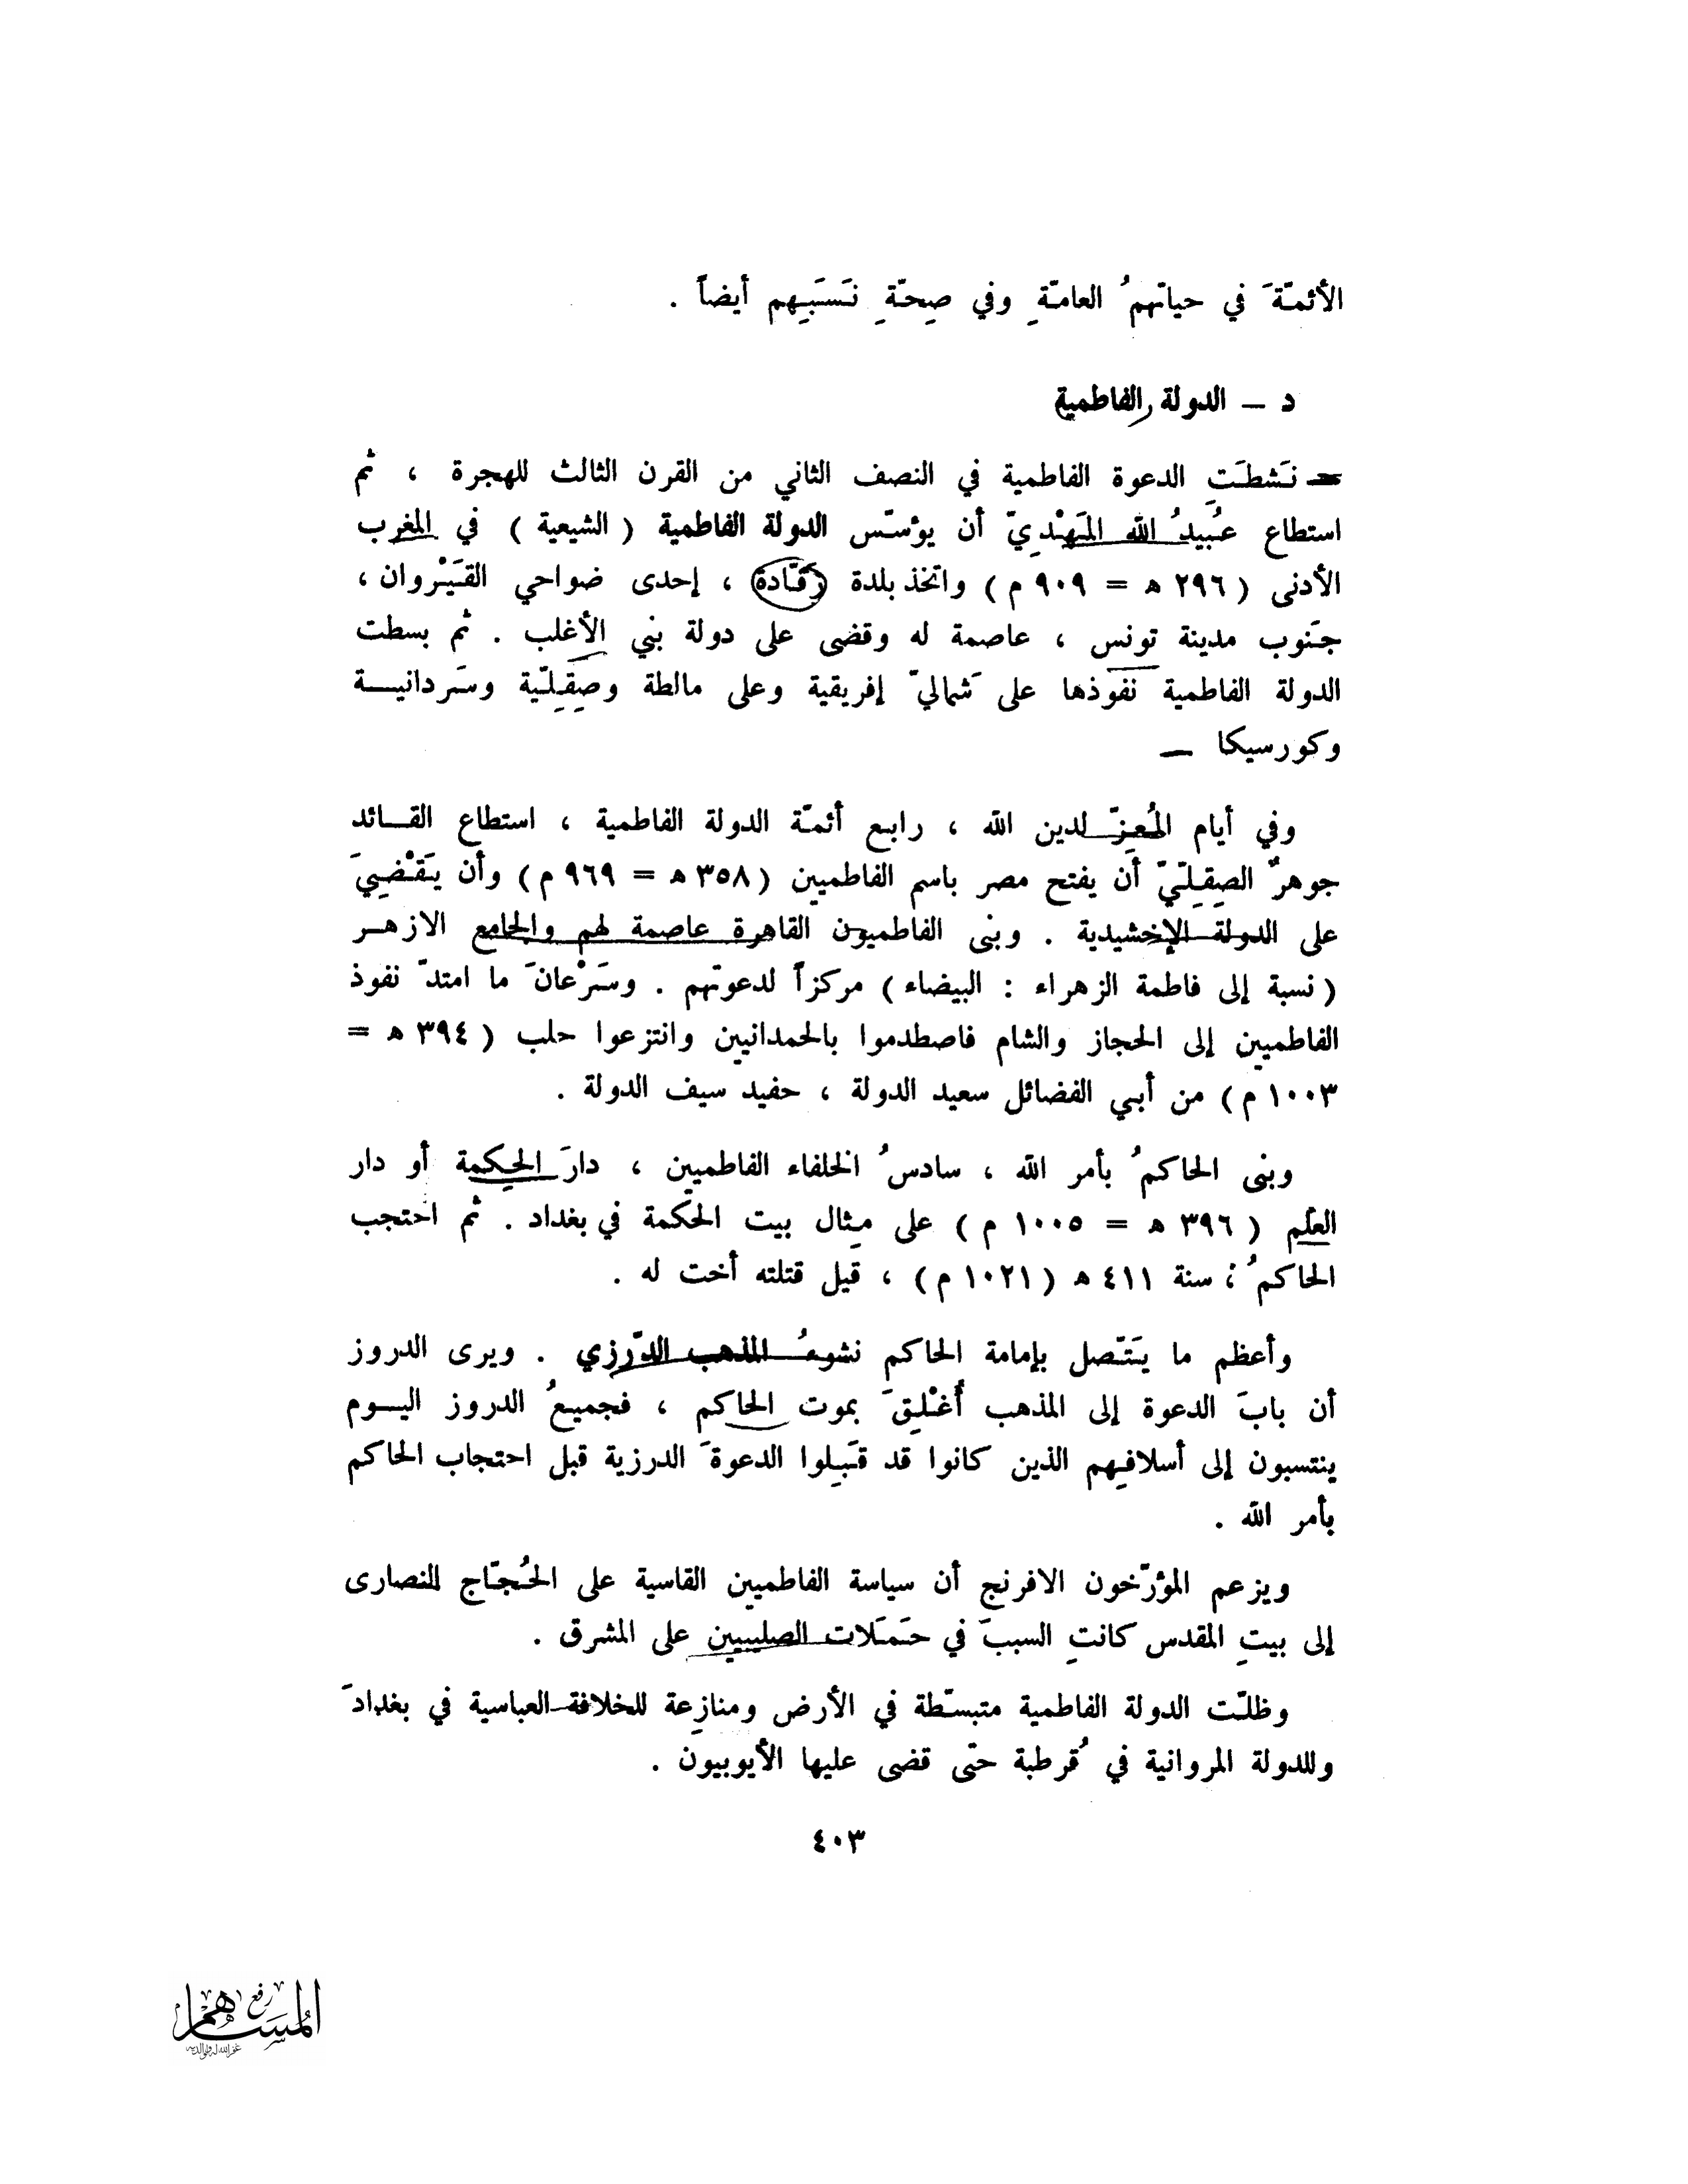 الأئمّةَ في حياتهمُ العامّةِ وفي صِحّةِ نَسَبِهم أيضاً .
د – الدولة الفاطمية
نَشطَتِ الدعوة الفاطمية في النصف الثاني من القرن الثالث للهجرة ، ثم
استطاع عُبيدُ الله المَهْديّ أن يؤسّس الدولة الفاطمية ( الشيعية ) في المغرب
الأدنى ( ٢٩٦ ه = ٩٠٩ م ) واتخذ بلدة رَقّادة ، إحدى ضواحي القَيْروان ،
جَنوب مدينة تونس ، عاصمة له وقضى على دولة بني الأغلب . ثم بسطت
الدولة الفاطمية نفوذها على شَماليّ إفريقية وعلى مالطة وصِقِلّية وسَردانيـــة
وكورسيكا –
وفي أيام المُعِزّ لدين الله ، رابع أئمّة الدولة الفاطمية ، استطاع القـــائد
جوهرٌ الصِقِلّيّ أن يفتح مصر باسم الفاطميين ( ٣٥٨ ه = ٩٦٩ م ) وأن يَقْضِيَ
على الدولة الإخشيدية . وبنى الفاطميون القاهرة عاصمة لهم والجامع الازهـر
( نسبة إلى فاطمة الزهراء : البيضاء ) مركزاً لدعوتهم . وسَرْعانَ ما امتدّ نفوذ
الفاطميين إلى الحجاز والشام فاصطدموا بالحمدانيين وانتزعوا حلب ( ٣٩٤ ه =
١٠٠٣ م ) من أبي الفضائل سعيد الدولة ، حفيد سيف الدولة .
وبنى الحاكمُ بأمر الله ، سادسُ الخلفاء الفاطميين ، دارَ الحِكمة أو دار
العلم ( ٣٩٦ ه = ١٠٠٥ م ) على مِثال بيت الحكمة في بغداد . ثم احتجب
الحاكمُ ، سنة ٤١١ ه ( ١٠٢١ م ) ، قيل قتلته أخت له .
وأعظم ما يَتّصل بإمامة الحاكم نشوءُ المذهب الدّرزي . ويرى الدروز
أن بابَ الدعوة إلى المذهب أُغْلِقَ بموت الحاكم ، فجميعُ الدروز اليـــوم
ينتسبون إلى أسلافِهم الذين كانوا قد قَبِلوا الدعوةَ الدرزية قبل احتجاب الحاكم
بأمر الله .
ويزعم المؤرّخون الافرنج أن سياسة الفاطميين القاسية على الحُجّاج النصارى
إلى بيتِ المقدس كانتِ السببَ في حَمَلات الصليبيين على المشرق .
وظلّت الدولة الفاطمية متبسّطة في الأرض ومنازِعة للخلافة العباسية في بغدادَ
وللدولة المروانية في قُرطبة حتّى قضى عليها الأيوبيون .
٤٠٣
رفع
المساهم
غفر الله له ولوالديه